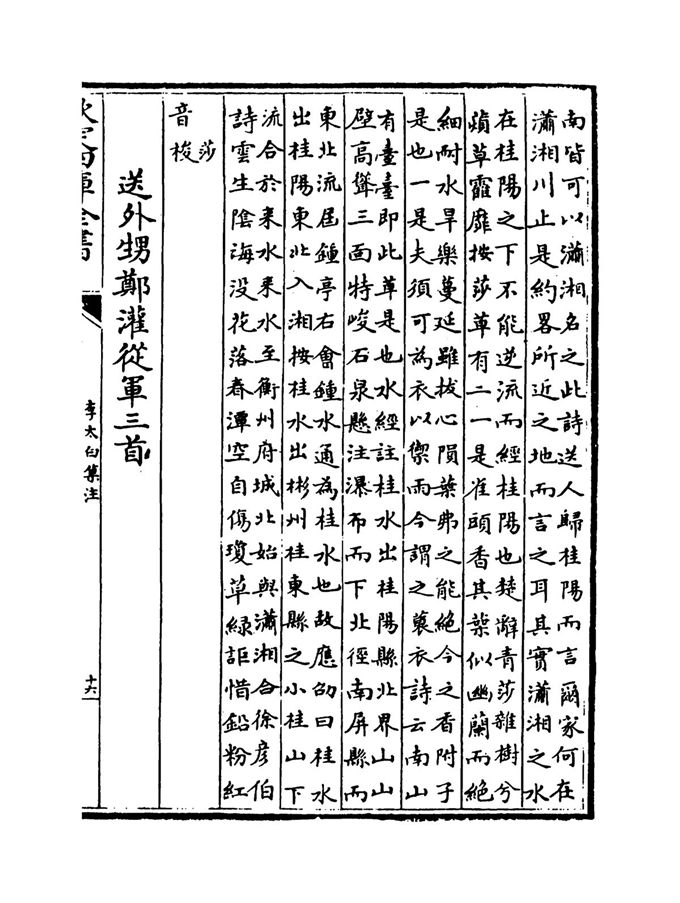 南皆可以瀟湘名之此詩送人歸桂陽而言爾家何在
瀟湘川止是約畧所近之地而言之耳其實瀟湘之水
在桂陽之下不能逆流而經桂陽也楚辭青莎雜樹兮
薠草靃靡按莎草有二一是雀頭香其葉似幽蘭而絶
細耐水旱樂蔓延雖拔心隕葉弗之能絶今之香附子
是也一是夫須可為衣以禦雨今謂之蓑衣詩云南山
有臺臺即此草是也水經註桂水出桂陽縣北界山山
壁高聳三面特峻石泉懸注瀑布而下北徑南屏縣而
東北流屆鍾亭右會鍾水通為桂水也故應劭曰桂水
出桂陽東北入湘按桂水出彬州桂東縣之小桂山下
流合於耒水耒水至衡州府城北始與瀟湘合徐彦伯
詩雲生陰海没花落春潭空自傷瓊草緑詎惜鉛粉紅
莎
音梭
送外甥鄭灌從軍三首
欽定四庫全書
李太白集注
十六